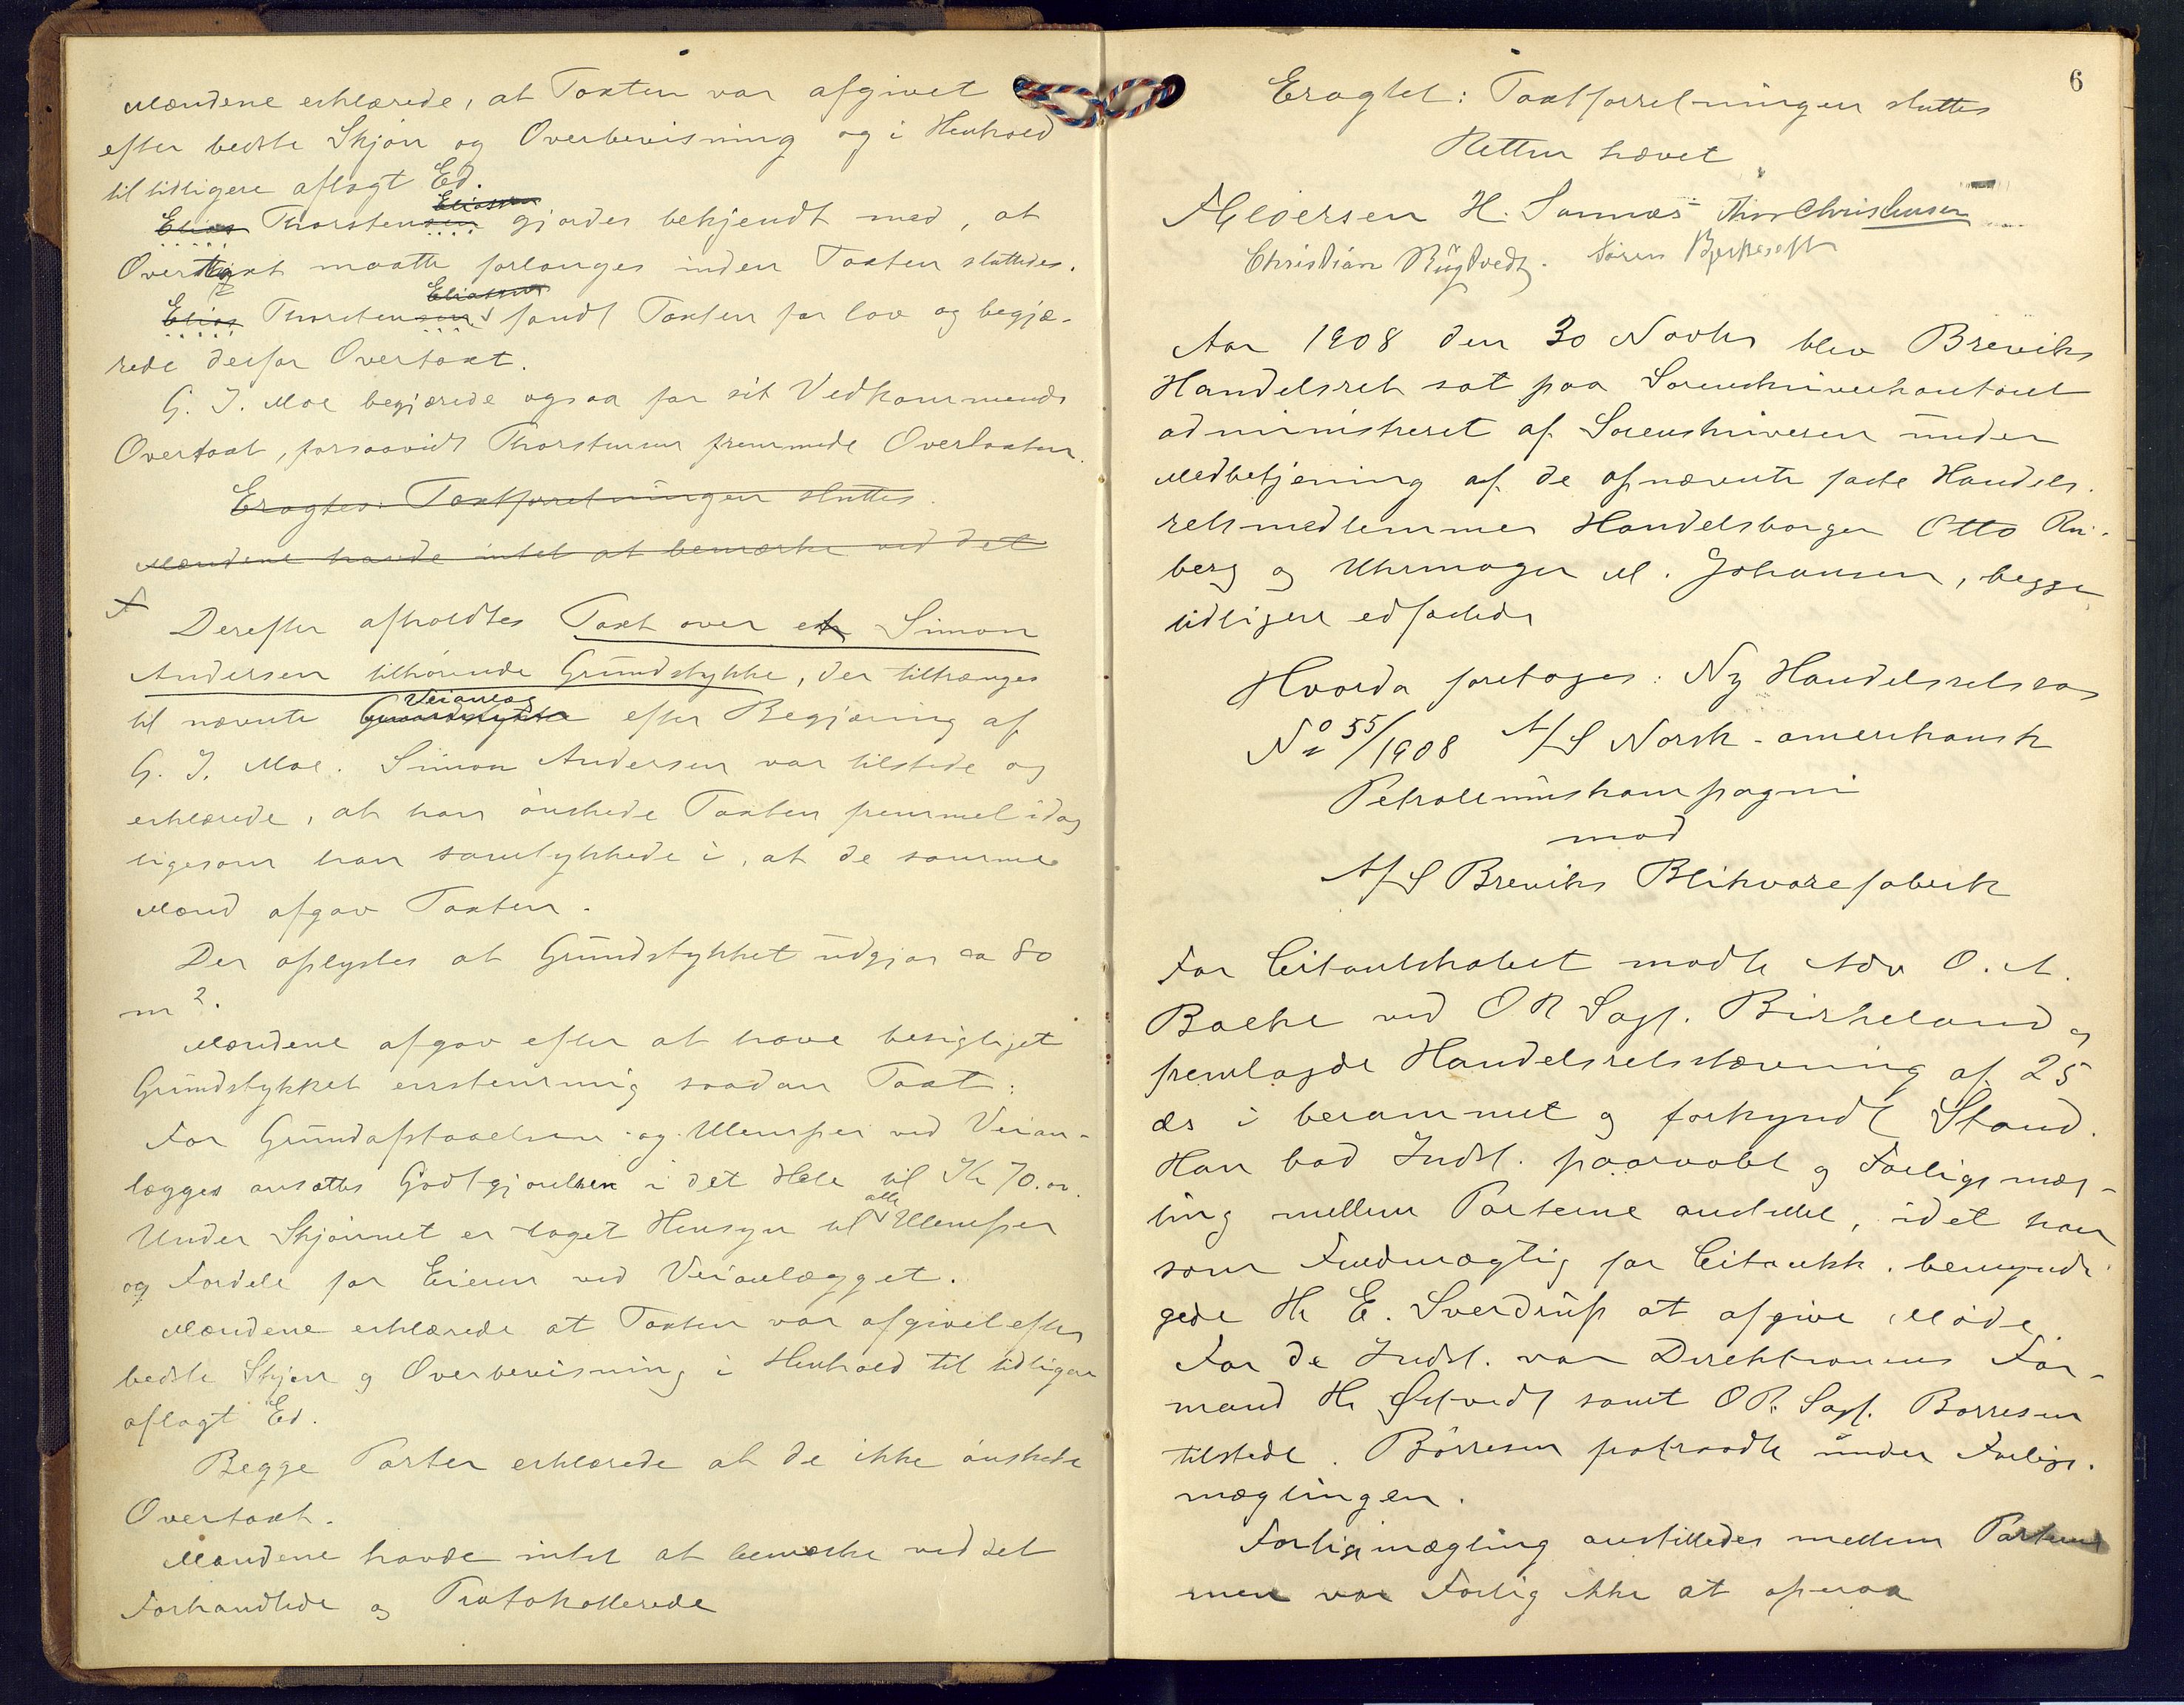 Mændene erklærede, at Taxten var afgivet
efter bedste Skjøn og Overbevisning og i Henhold
til tidligere aflagt Ed.
Eliassen
Elias Thorstensen gjordes bekjendt med, at
Overtaxt maatte forlanges inden Taxten sluttedes.
Eliassen
Elias Thorstensen fandt Taxten for lav og begjæ-
rede derfor Overtaxt.
G. J. Moe begjærede ogsaa for sit Vedkommende
Overtaxt, forsaavidt Thorstensen fremmede Overtaxten.
Eragtes: Taxtforretningen sluttes.
Mændene havde intet at bemærke ved det
Derefter afholdtes Taxt over et Simon
Andersen tilhørende Grundstykke, der tiltrænges
Veianlæg
til nævnte Grundstykke efter Begjæring af
G. J. Moe. Simon Andersen var tilstede og
erklærede, at han ønskede Taxten fremmet idag
ligesom han samtykkede i, at de samme
Mænd afgav Taxten.
Der oplystes at Grundstykket udgjør ca 80
m².
Mændene afgav efter at have besigtiget
Grundstykket enstemmig saadan Taxt:
For Grundafstaaelsen og Ulemper ved Veian-
lægget ansattes Godtgjørelsen i det Hele til Kr 70.00.
alle
Under Skjønnet er taget Hensyn til Ulemper
og Fordele for Eieren ved Veianlægget.
Mændene erklærede at Taxten var afgivet efter
bedste Skjøn og Overbevisning i Henhold til tidligere
aflagt Ed.
Begge Parter erklærede at de ikke ønskede
Overtaxt.
Mændene havde intet at bemærke ved det
Forhandlede og Protokollerede
6
Eragtet: Taxtforretningen sluttes
Retten hævet
H. Sannes Thor Christensen
Christian Rugtvedt. Søren
Aar 1908 den 30 Novbr blev Breviks
Handelsret sat paa Sorenskriverkontoret
administreret af Sorenskriveren under
Medbetjening af de opnævnte faste Handels-
retsmedlemmer Handelsborger Otto Ri-
berg og Uhrmager M. Johansen, begge
tidligere edfæstede
Hvorda foretoges: Ny Handelsretssag
No 55/1908 A/S Norsk-amerikansk
Petroleumskompagni
mod
A/S Breviks Blikvarefabrik
For Citantskabet mødte Adv O. A.
Bache ved OR Sagf. Birkeland og
fremlagde Handelsretsstævning af 25
ds i berammet og forkyndt Stand.
Han bad Indst. paaraabt og Forligsmæg-
ling mellem Parterne anstillet, idet han
som Fuldmægtig for Citantsk. bemyndi-
gede Hr E. Sverdrup at afgive Møde.
For de Indst. var Direktionens For-
mand Hr Østvedt samt OR. Sagf. Børresen
tilstede. Børresen fratraadte under Forligs-
mæglingen.
Forligsmægling anstilledes mellem Parterne
men var Forlig ikke at opnaa